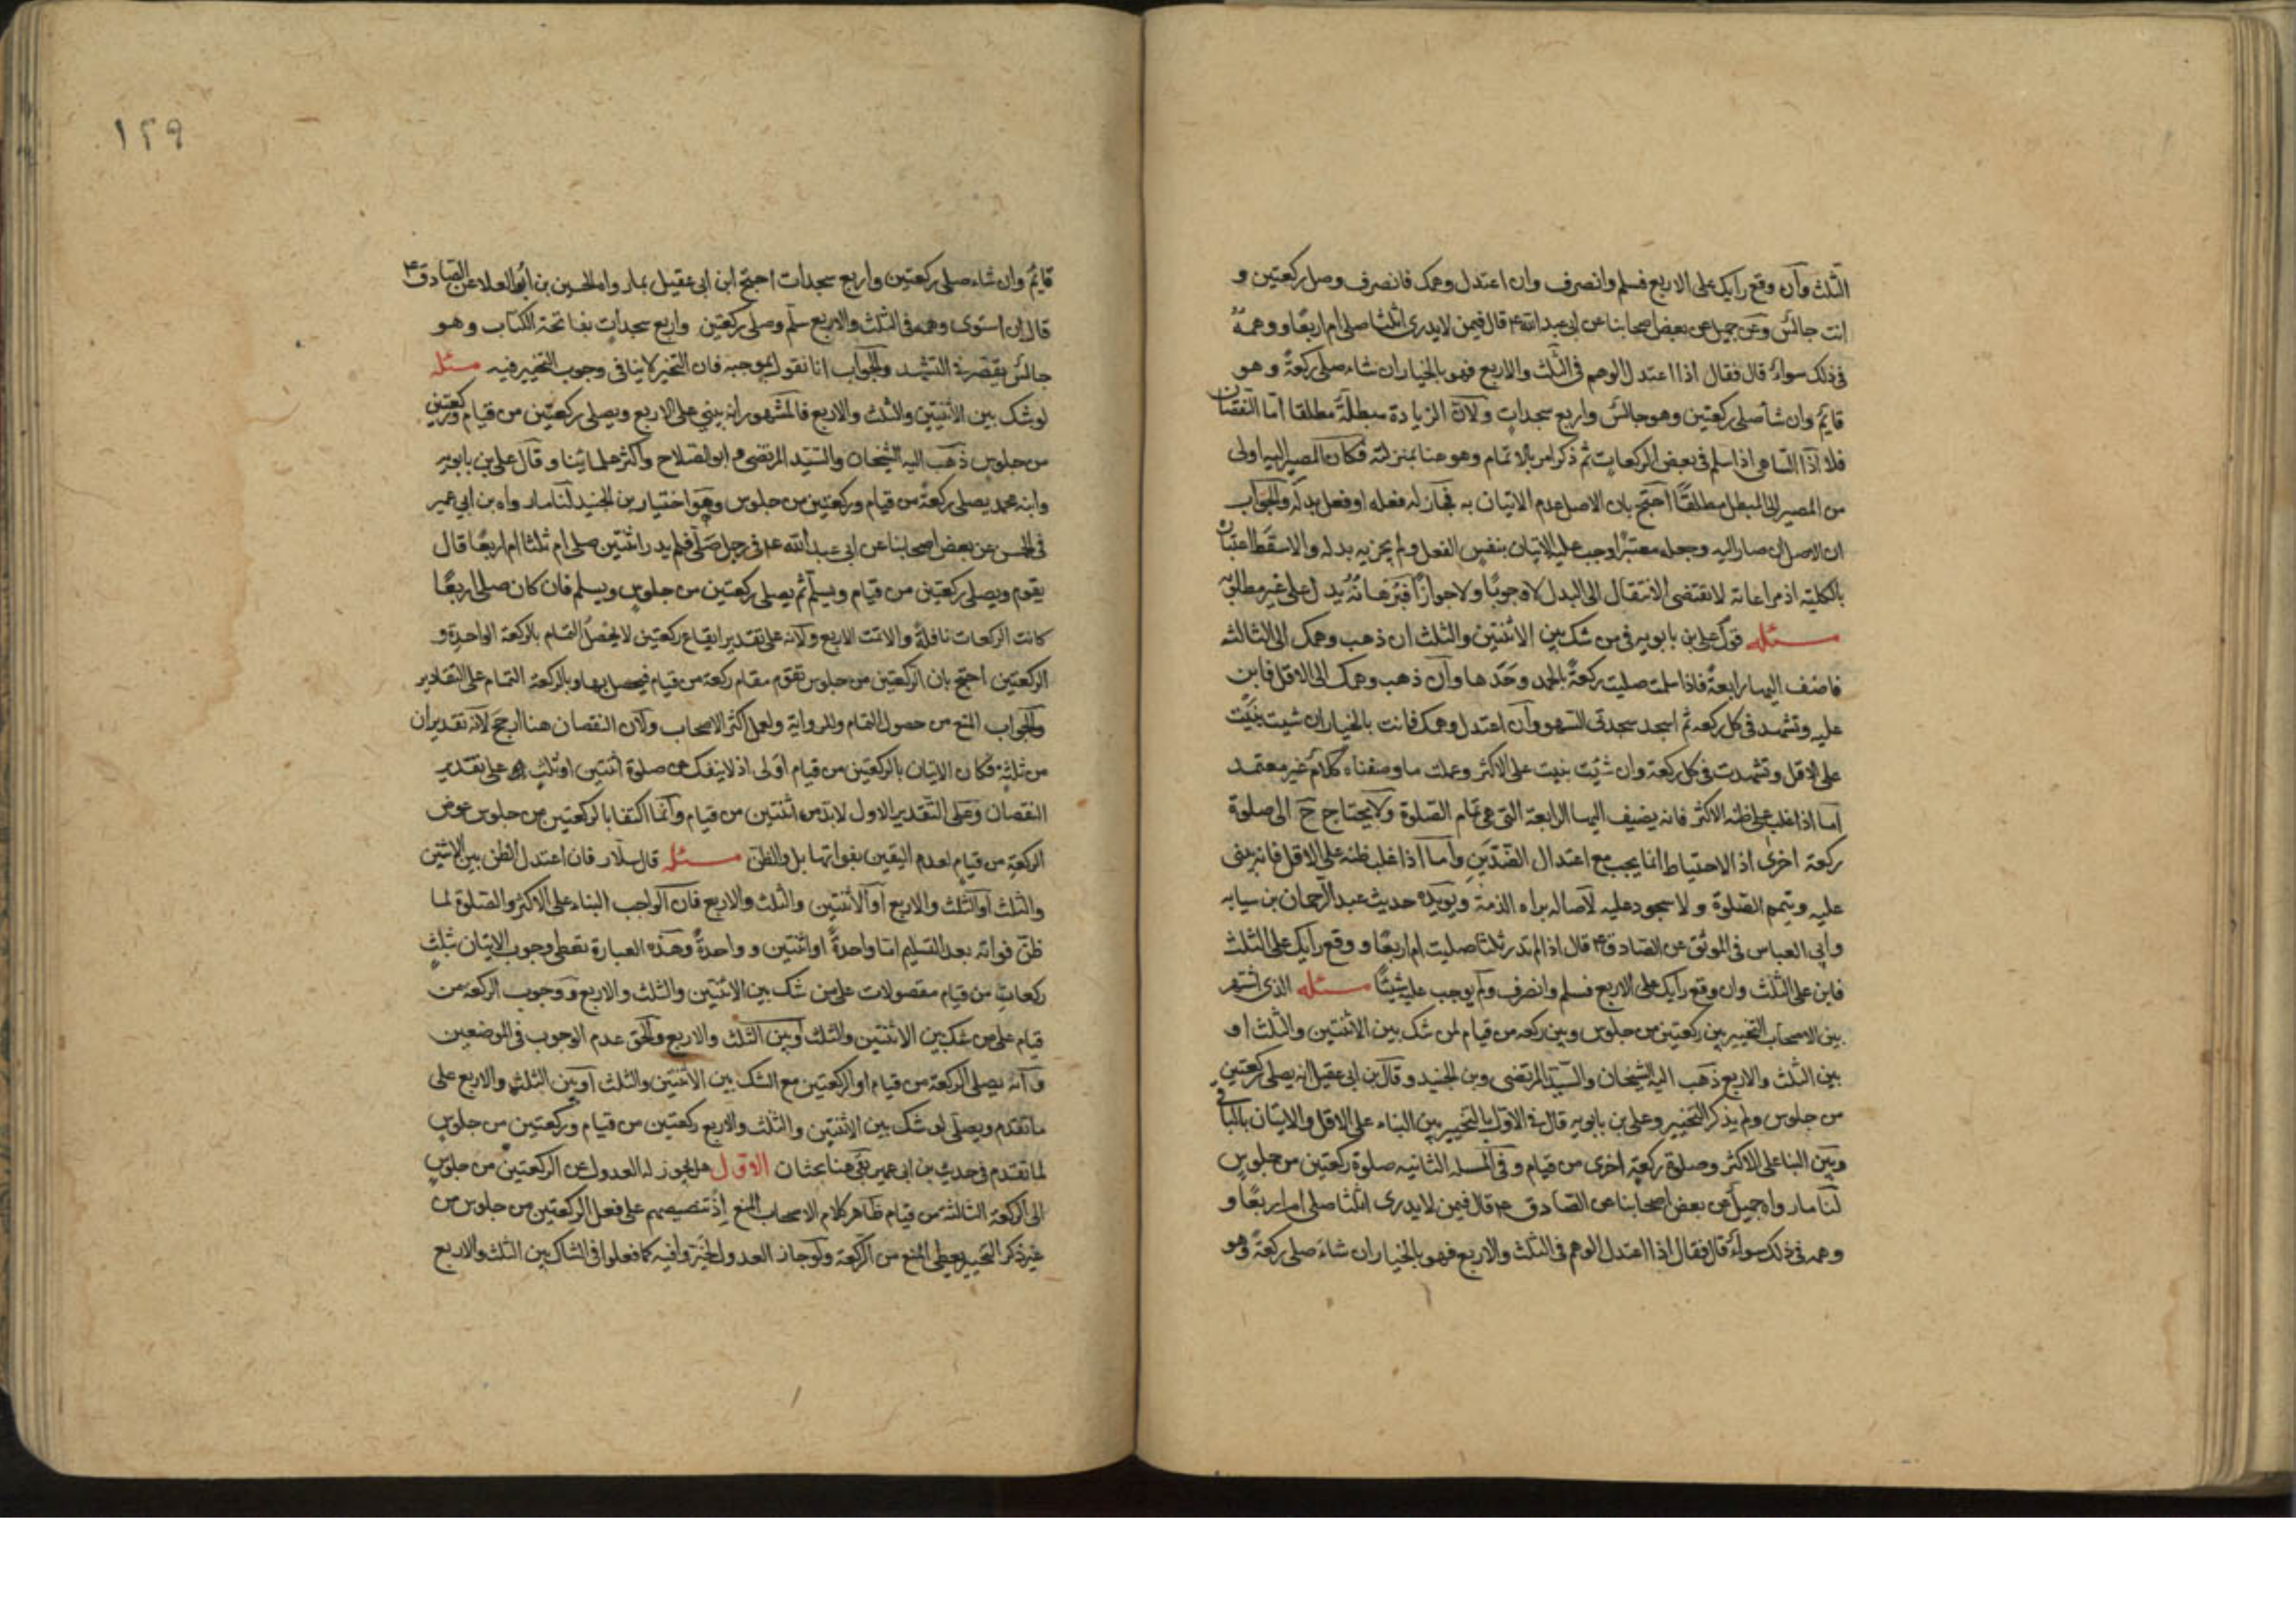 الثلث وان وقع رأيك على الاربع فسلم وانصرف وان اعتدل وهمك فانصرف وصل ركعتين و
انت جالس وعن جميل عن بعض اصحابنا عن ابى عبد الله ع قال فيمن لا يدرى اثلثا صلى ام اربعا ووهمه
فى ذلك سواء قال فقال اذا اعتدل الوهم فى الثلث والاربع فهو بالخيار ان شاء صلى ركعة وهو
قايم وان شاء صلى ركعتين وهو جالس واربع سجدات ولان الزيادة مبطلة مطلقا اما النقصان
فلا اذ الساهى اذا سلم فى بعض الركعات ثم ذكر امر بالاتمام وهو هنا بمنزلته فكان المصير اليه اولى
من المصير الى المبطل مطلقا احتج بان الاصل عدم الاتيان به فجاز له فعله او فعل بدله والجواب
ان الاصل ان صار اليه وجعله معتبرا وجب عليه الاتيان بنفس الفعل ولم يجزيه بدله والا سقط اعتباره
بالكلية اذ مراعاته لا تقتضى الانتقال الى البدل لا وجوبا ولا جوازا
مسئله قول على بن بابويه فى من شك بين الاثنتين والثلث ان ذهب وهمك الى الثالثه
فاضف اليها رابعة فاذا سلمت صليت ركعة بالحمد وحدها وان ذهب وهمك الى الاقل فابن
عليه وتشهد فى كل ركعه ثم اسجد سجدتى السهو وان اعتدل وهمك فانت بالخيار ان شيت بنيت
على الاقل وتشهدت فى كل ركعة وان شئت بنيت على الاكثر وعملت ما وصفناه كلام غير معتمد
اما اذا غلب على ظنه الاكثر فانه يضيف اليها الرابعة التى هى تمام الصلوة ولا يحتاج ح الى صلوة
ركعة اخرى اذ الاحتياط انما يجب مع اعتدال الضدين واما اذا غلب ظنه على الاقل فانه يبنى
عليه ويتمم الصلوة ولا سجود عليه لاصاله براه الذمة ويويده حديث عبد الرحمان بن سيابه
وابى العباس فى الموثق عن الصادق ع قال اذا لم تدر ثلثا صليت ام اربعا ووقع رأيك على الثلث
فابن على الثلث وان وقع رأيك على الاربع فسلم وانصرف ولم يوجب عليه شيئا مسئله الذى اشتهر
بين الاصحاب التخيير بين ركعتين من جلوس وبين ركعه من قيام لمن شك بين الاثنتين والثلث او
بين الثلث والاربع ذهب اليه الشيخان والسيد المرتضى وبن الجنيد وقال بن ابى عقيل انه يصلى ركعتين
من جلوس ولم يذكر التخيير وعلى بن بابويه قال فى الاول بالتخيير بين البناء على الاقل والاتيان بالباقى
وبين البنا على الاكثر وصلوة ركعة اخرى من قيام وفى المسله الثانيه صلوة ركعتين من جلوس
لنا ما رواه جميل عن بعض اصحابنا عن الصادق ع قال فيمن لا يدرى اثلثا صلى ام اربعا و
وهمه فى ذلك سواء قال فقال اذا اعتدل الوهم فى الثلث والاربع فهو بالخيار ان شاء صلى ركعة وهو
١٢٩
قايم وان شاء صلى ركعتين واربع سجدات احتج ابن ابى عقيل بما رواه الحسين بن ابى العلا عن الصادق ع
قال ان استوى وهمه فى الثلث والاربع سلم وصلى ركعتين واربع سجدات بفاتحة الكتاب وهو
جالس يقصر فى التشهد والجواب انا نقول بموجبه فان التخير لا ينافى وجوب التخيير فيه مسئله
لو شك بين الاثنتين والثلث والاربع فالمشهور انه يبنى على الاربع ويصلى ركعتين من قيام وركعتين
من جلوس ذهب اليه الشيخان والسيد المرتضى وابو الصلاح واكثر علمائنا وقال على بن بابويه
وابنه محمد يصلى ركعة من قيام وركعتين من جلوس وهو اختيار بن الجنيد لنا ما رواه بن ابى عمير
فى الحسن عن بعض اصحابنا عن ابى عبد الله ع فى رجل صلى فلم يدر اثنتين صلى ام ثلثا ام اربعا قال
يقوم ويصلى ركعتين من قيام ويسلم ثم يصلى ركعتين من جلوس ويسلم فان كان صلى اربعا
كانت الركعات نافلة والا تمت الاربع ولانه على تقدير ايقاع ركعتين لا يحصل التمام بالركعة الواحدة و
الركعتين احتج بان الركعتين من جلوس تقوم مقام ركعة من قيام فيحصل بها وبالركعة التمام على التقادير
والجواب المنع من حصول التمام وللرواية ولعمل اكثر الاصحاب ولان النقصان هنا ارجح لانه تقديران
من ثلثة فكان الاتيان بالركعتين من قيام اولى اذ لا ينفك من صلوة اثنتين او ثلث على تقدير
النقصان وعلى التقدير الاول لابد من اثنتين من قيام وانما اكتفا بالركعتين من جلوس عوض
الركعة من قيام لعدم اليقين بفواتها بل والظن مسئله قال سلار فان اعتدل الظن بين الاثنين
والثلث او الثلث والاربع او الاثنتين والثلث والاربع فان الواجب البناء على الاكثر والصلوة لما
ظن فواته بعد التسليم اما واحدة او اثنتين وواحدة وهذه العبارة تعطى وجوب الاتيان بثلث
ركعات من قيام مفصولات على من شك بين الاثنتين والثلث والاربع ووجوب الركعة من
قيام على من شك بين الاثنتين والثلث او بين الثلث والاربع والحق عدم الوجوب فى الموضعين
وانه يصلى الركعة من قيام او الركعتين مع الشك بين الاثنتين والثلث او بين الثلث والاربع على
ما تقدم ويصلى لو شك بين الاثنتين والثلث والاربع ركعتين من قيام وركعتين من جلوس
لما تقدم فى حديث بن ابى عمير بقى هنا بحثان الاول هل يجوز له العدول عن الركعتين من جلوس
الى الركعة الثالثه من قيام ظاهر كلام الاصحاب المنع اذ تنصيصهم على فعل الركعتين من جلوس من
غير ذكر التخيير يعطى المنع من الركعة ولو جاز العدول لخيروا فيه كما فعلوا فى الشاك بين الثلث والاربع